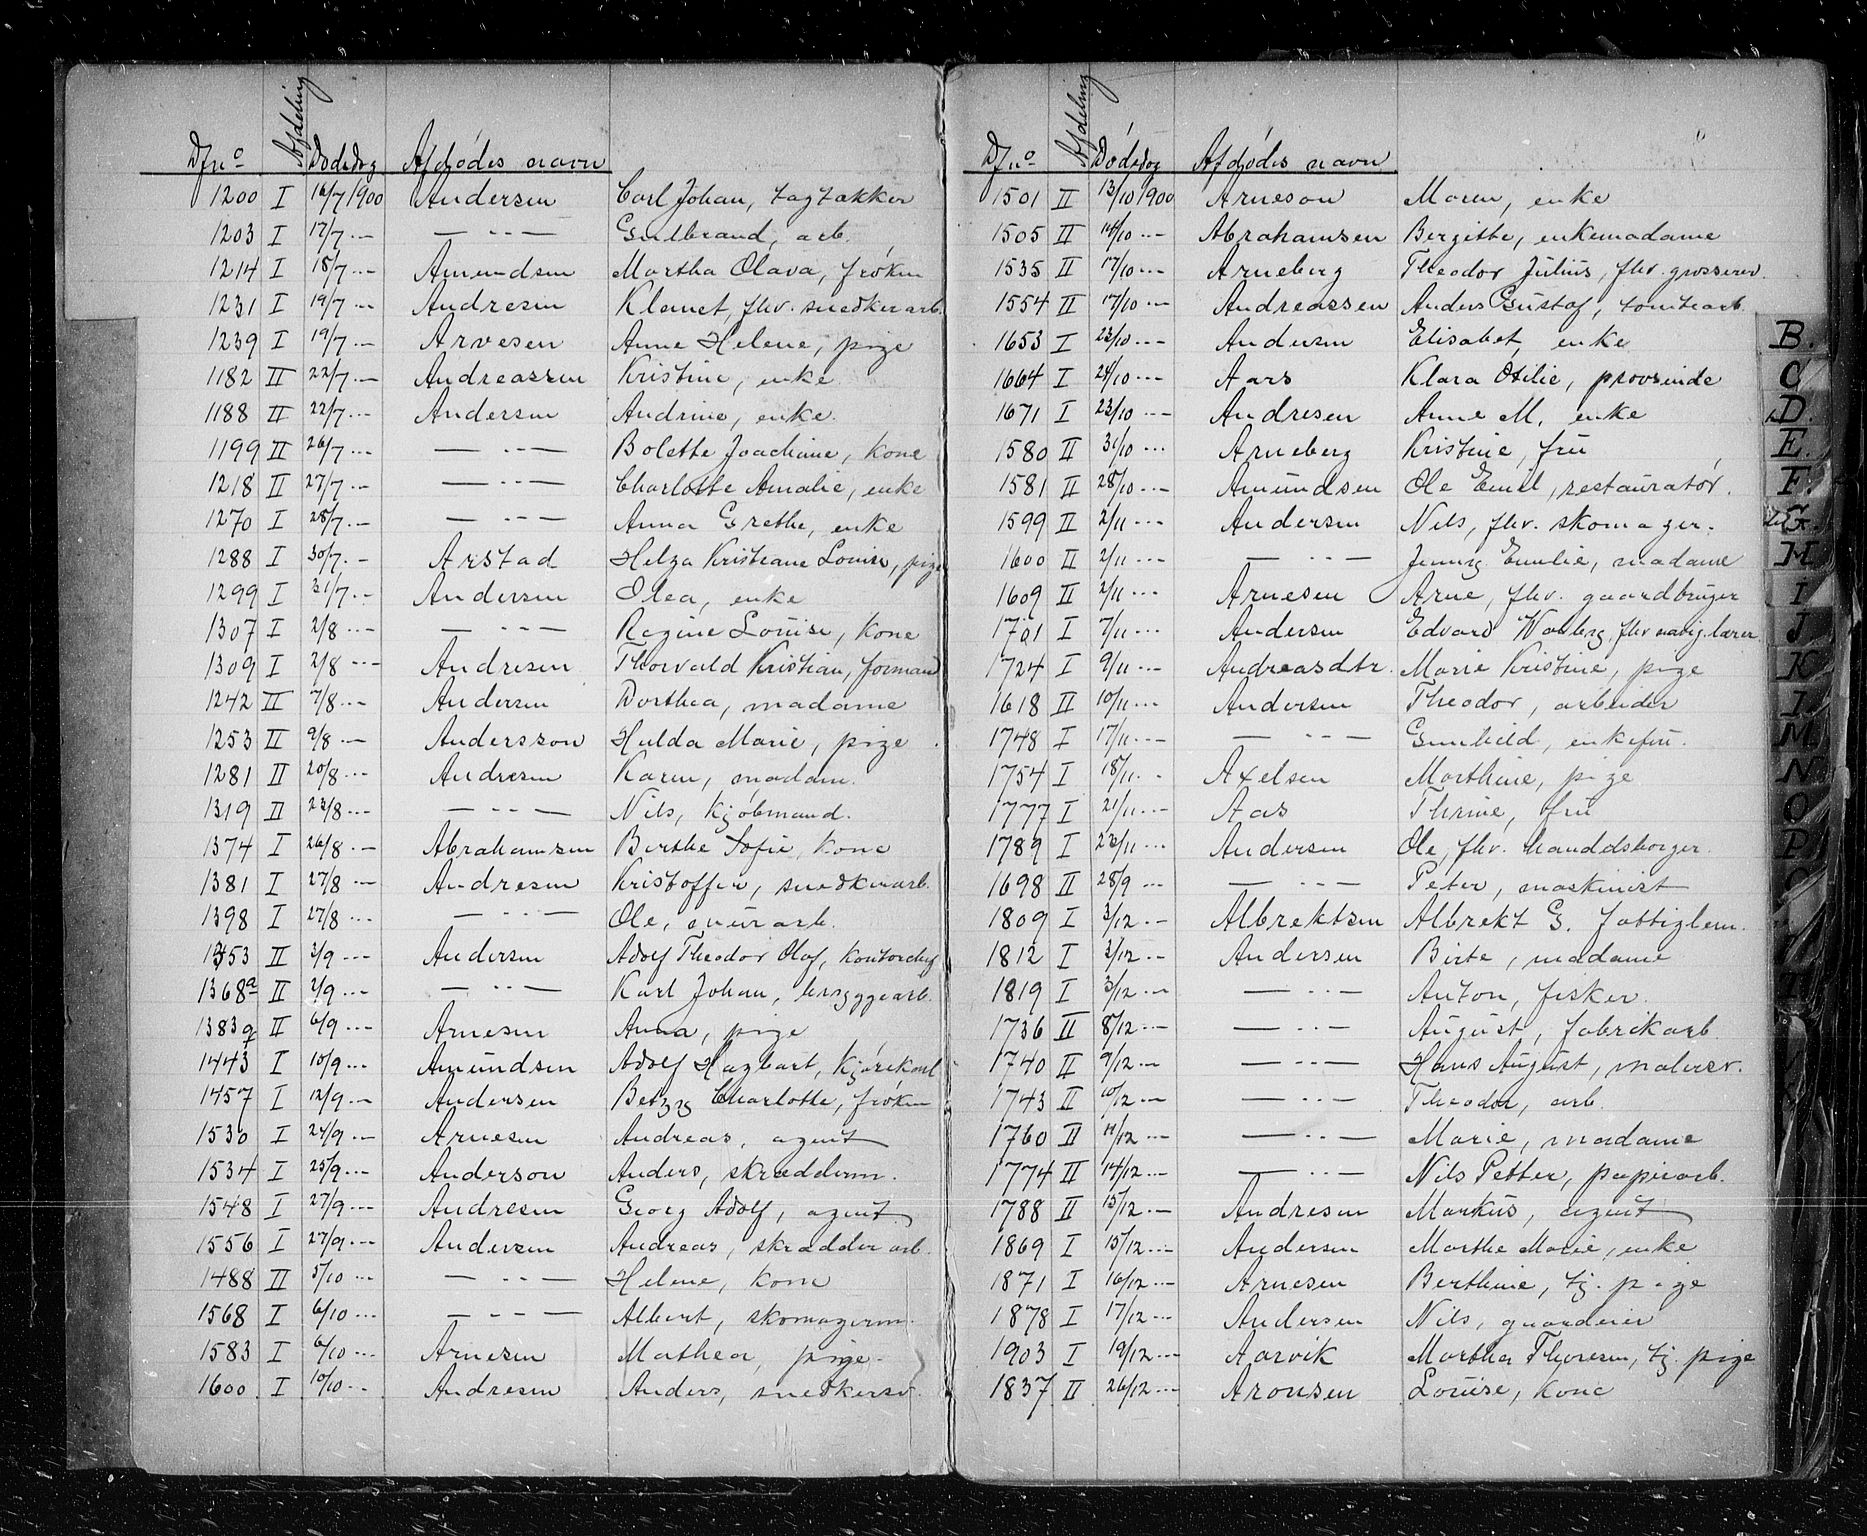 Dfn° Afdeling Dødsdag Afdødes navn
1200 I 16/7 1900 Andersen Carl Johan, tagtækker
1203 I 17/7 --- — - - — Gulbrand, arb.
1214 I 18/7 --- Amundsen Martha Olava, frøken
1231 I 19/7 --- Andresen Klemet, fhv. snedkerarb.
1239 I 19/7 --- Arvesen Anne Helene, pige
1182 II 22/7 --- Andreassen Kristine, enke
1188 II 22/7 --- Andersen Andrine, enke.
1199 II 26/7 --- — - - — Bolette Joachime, kone
1218 II 27/7 --- — - - — Charlotte Amalie, enke
1270 I 28/7 --- — - - — Anna Grethe, enke
1288 I 30/7 -- Arstad Helga Kristiane Louise, pige
1299 I 31/7 -- Andersen Olea, enke
1307 I 2/8 --- — - - — Regine Louise, kone
1309 I 2/8 --- Andresen Thorvald Kristian, formand
1242 II 7/8 --- Andersen Dorthea, madame
1253 II 9/8 --- Andersson Hulda Marie, pige
1281 II 20/8 --- Andresen Karen, madam.
1319 II 23/8 --- — - - — Nils, kjøbmand.
1374 I 26/8 --- Abrahamsen Berthe Sofie, kone
1381 I 27/8 --- Andresen Kristoffer, snedkerarb.
1398 I 27/8 --- — - - — Ole, murarb.
1353 II 3/9 --- Andersen Adolf Theodor Olaf, kontorchef
1368a II 2/9 --- — - - — Karl Johan, bryggearb.
1383a II 6/9 --- Arnesen Anna, pige
1443 I 10/9 --- Amundsen Adolf Hagbart, kjørekarl
1457 I 12/9 --- Andersen Betzy Charlotte, frøken
1530 I 24/9 --- Arnesen Andreas, agent
1534 I 25/9 --- Anderson Anders, skrædderm.
1548 I 27/9 --- Andresen Georg Adolf, agent
1556 I 27/9 --- Andersen Andreas, skrædder arb.
1488 II 5/10 --- — - - — Helene, kone
1568 I 6/10 --- — - - — Albert, skomagerm.
1583 I 6/10 --- Arnesen Mathea, pige
1600 I 10/10 --- Andresen Anders, snedkersv.
Dfn° Afdeling Dødsdag Afdødes navn
1501 II 13/10 1900 Arneson Maren, enke
1505 II 14/10 --- Abrahamsen Bergitte, enkemadame
1535 II 17/10 --- Arneberg Theodor Julius, fhv. grosserer.
1554 II 17/10 --- Andreassen Anders Gustaf, tomtearb.
1653 I 23/10 --- Andersen Elisabet, enke
1664 I 24/10 --- Aars Klara Otilie, provsinde
1671 I 23/10 --- Andresen Anne M. enke
1580 II 31/10 --- Arneberg Kristine, fru
1581 II 28/10 --- Amundsen Ole Emil, restauratør.
1599 II 2/11 --- Andersen Nils, fhv. skomager.
1600 II 2/11 --- — - - — Jenny Emilie, madame
1609 II 2/11 --- Arnesen Arne, fhv. gaardbruger
1701 I 7/11 --- Andersen Edvard Warberg, fhv navig.lærer.
1724 I 9/11 --- Andreasdtr. Marie Kristine, pige
1618 II 10/11 --- Andersen Theodor, arbeider
1748 I 17/11 --- — - - — Gunhild, enkefru.
1754 I 18/11 --- Axelsen Marthine, pige
1777 I 21/11 --- Aas Thrine, fru
1789 I 23/11 --- Andersen Ole, fhv. handelsborger.
1698 II 28/9 --- — - - — Peter, maskinist
1809 I 3/12 --- Albrektsen Albrekt G. fattiglem.
1812 I 3/12 --- Andersen Birte, madame
1819 I 3/12 --- — - - — Anton, fisker.
1736 II 8/12 --- — - - — August, fabrikarb.
1740 II 9/12 --- — - - — Hans August, malersv.
1743 II 10/12 --- — - - — Theodor, arb.
1760 II 11/12 --- — - - — Marie, madame
1774 II 14/12 --- — - - — Nils Petter, papirarb.
1788 II 15/12 --- Andresen Markus, agent
1869 I 15/12 --- Andersen Marthe Marie, enke
1871 I 16/12 --- Arnesen Berthine, tj. pige
1878 I 17/12 --- Andersen Nils, guardeier
1903 I 19/12 --- Aarvik Martha Theresen, tj. pige
1837 II 26/12 --- Aronsen Louise, kone
B.
C
D.
E.
F.
G.
H
I
J
K
L.
M.
N
O
P